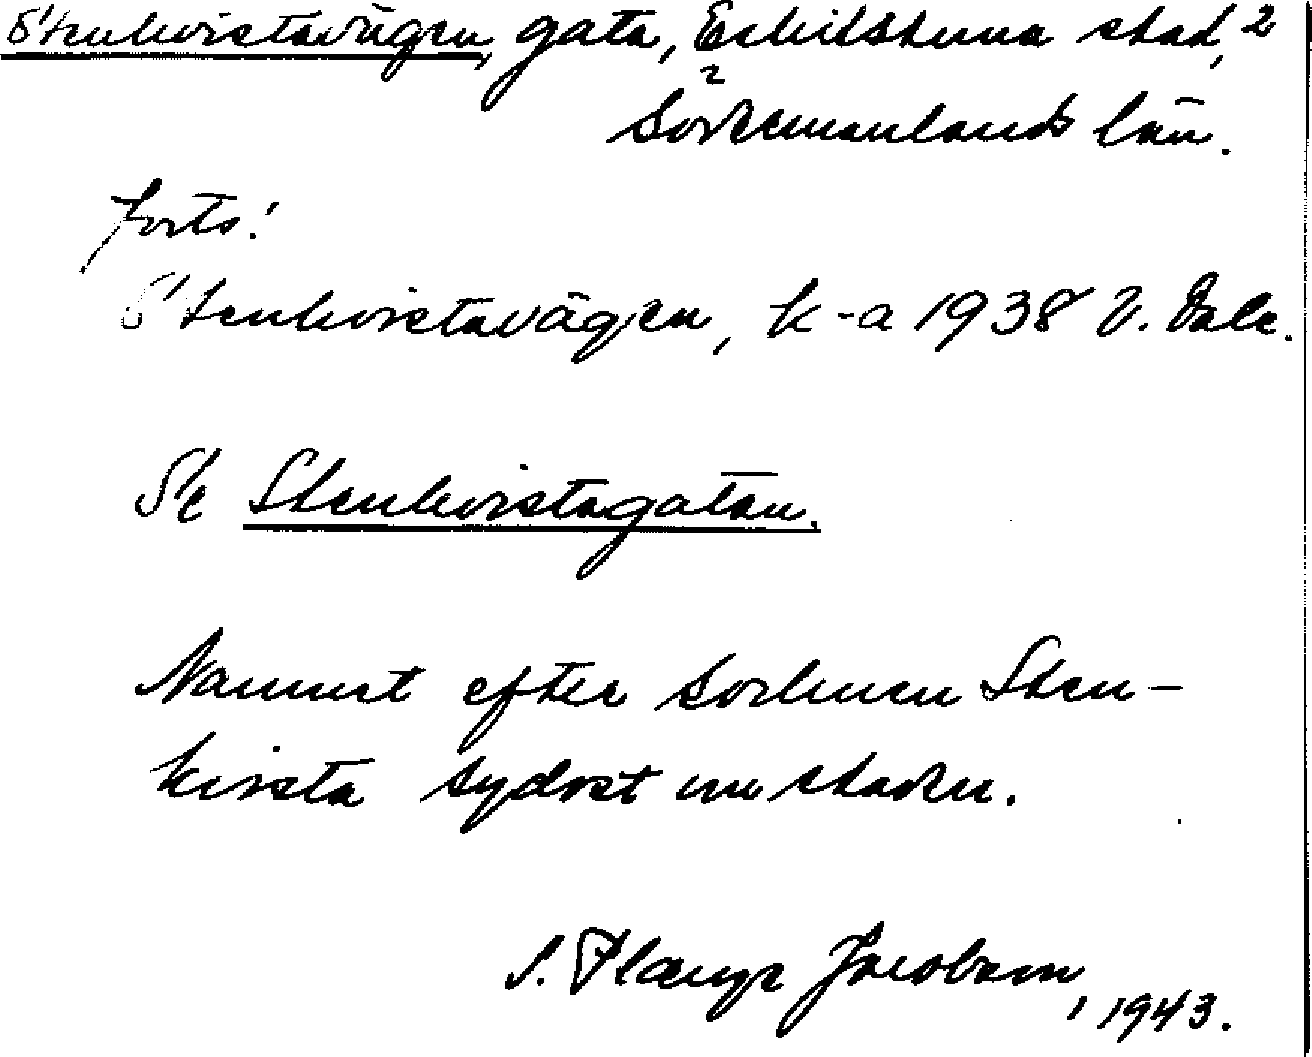 Stenkvistavägen, gata, Eskilstuna stad, 2
Södermanlands län.
forts.:
Stenkvistavägen, k-a 1938 V. Dale.
Se Stenkvistagatan.
Namnet efter socknen Sten-
kvista sydost om staden.
S. Jacobsson, 1943.